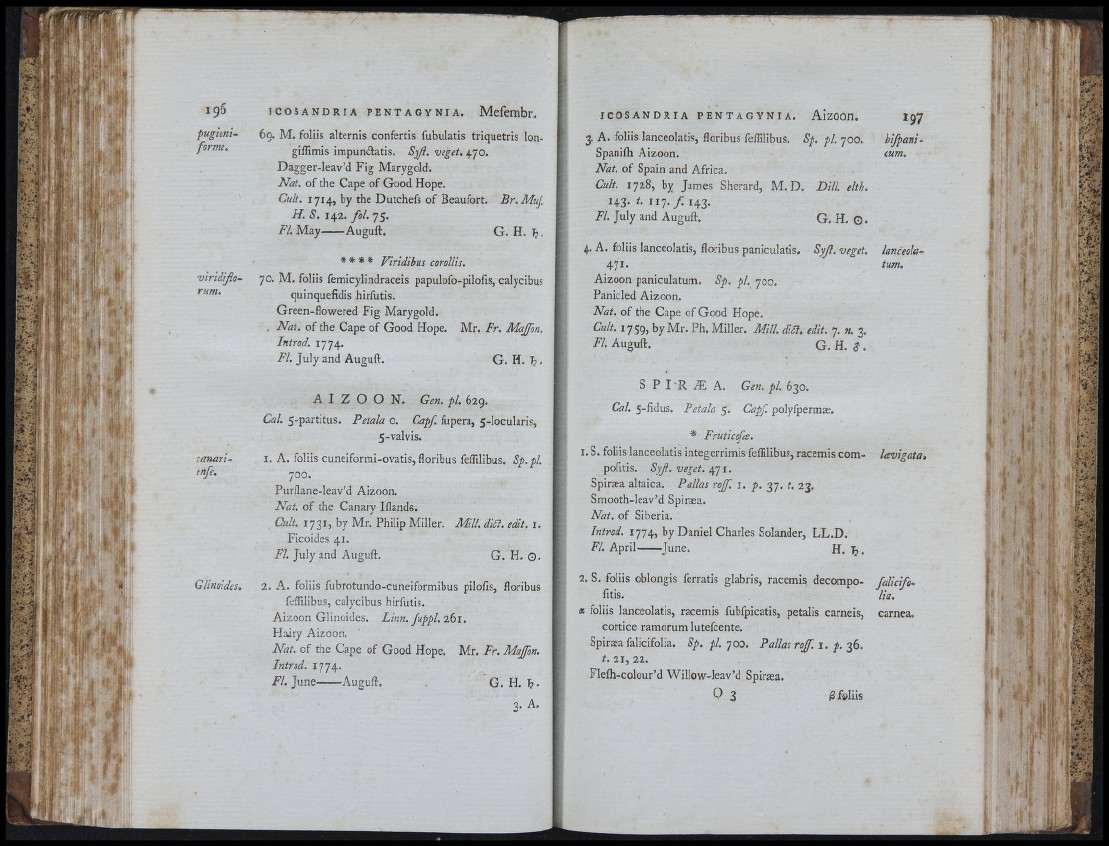 196 ICOSANDRIA PENTAGYNIA. Meſembr.
pugioni- 69. M. foliis alternis confertis ſubulatis triquetris lon-
forme. giſſimis impunctatis. Syſt. veget. 470.
Dagger-leav'd Fig Marygold.
Nat. of the Cape of Good Hope.
Cult. 1714, by the Dutcheſs of Beaufort. Br. Muſ.
H. S. 142. fol. 75.
Fl. May——Auguſt. G. H. ♄.
**** Viridibus corollis.
viridiflo- 70. M. foliis ſemicylindraceis papuloſo-piloſis, calycibus
rum. quinquefidis hirſutis.
Green-flowered Fig Marygold.
Nat. of the Cape of Good Hope. Mr. Fr. Maſſon.
Introd. 1774.
Fl. July and Auguſt. G. H. ♄.
AIZOON. Gen. pl. 629.
Cal. 5-partitus. Petala 0. Capſ. ſupera, 5-locularis,
5-valvis.
canari- 1. A. foliis cuneiformi-ovatis, floribus ſeſſilibus. Sp. pl.
enſe. 700.
Purſlane-leav'd Aizoon.
Nat. of the Canary Iſlands.
Cult. 1731, by Mr. Philip Miller. Mill. dict. edit. 1.
Ficoides 41.
Fl. July and Auguſt. G. H. ☉.
Glinoides. 2. A. foliis ſubrotundo-cuneiformibus piloſis, floribus
ſeſſilibus, calycibus hirſutis.
Aizoon Glinoides. Linn. ſuppl. 261.
Hairy Aizoon.
Nat. of the Cape of Good Hope. Mr. Fr. Maſſon.
Introd. 1774.
Fl. June——Auguſt. G. H. ♄.
3. A.
ICOSANDRIA PENTAGYNIA. Aizoon. 197
3. A. foliis lanceolatis, floribus ſeſſilibus. Sp. pl. 700. hiſpani-
Spaniſh Aizoon. cum.
Nat. of Spain and Africa.
Cult. 1728, by James Sherard, M. D. Dill. elth.
143. t. 117. f. 143.
Fl. July and Auguſt. G. H. ☉.
4. A. foliis lanceolatis, floribus paniculatis. Syſt. veget. lanceola-
471. tum.
Aizoon paniculatum. Sp. pl. 700.
Panicled Aizoon.
Nat. of the Cape of Good Hope.
Cult. 1759, by Mr. Ph. Miller. Mill. dict. edit. 7. n. 3.
Fl. Auguſt. G. H. ♂.
SPIRÆA. Gen. pl. 630.
Cal. 5-fidus. Petala 5. Capſ. polyſpermæ.
* Fruticoſæ.
1. S. foliis lanceolatis integerrimis ſeſſilibus, racemis com- lævigata.
poſitis. Syſt. veget. 471.
Spiræa altaica. Pallas roſſ. 1. p. 37. t. 23.
Smooth-leav'd Spiræa.
Nat. of Siberia.
Introd. 1774, by Daniel Charles Solander, LL.D.
Fl. April——June. H. ♄.
2. S. foliis oblongis ſerratis glabris, racemis decompo- ſalicifo-
ſitis. lia.
α foliis lanceolatis, racemis ſubſpicatis, petalis carneis, carnea.
cortice ramorum luteſcente.
Spiræa ſalicifolia. Sp. pl. 700. Pallas roſſ. 1. p. 36.
t. 21, 22.
Fleſh-colour'd Willow-leav'd Spiræa.
O 3 β foliis